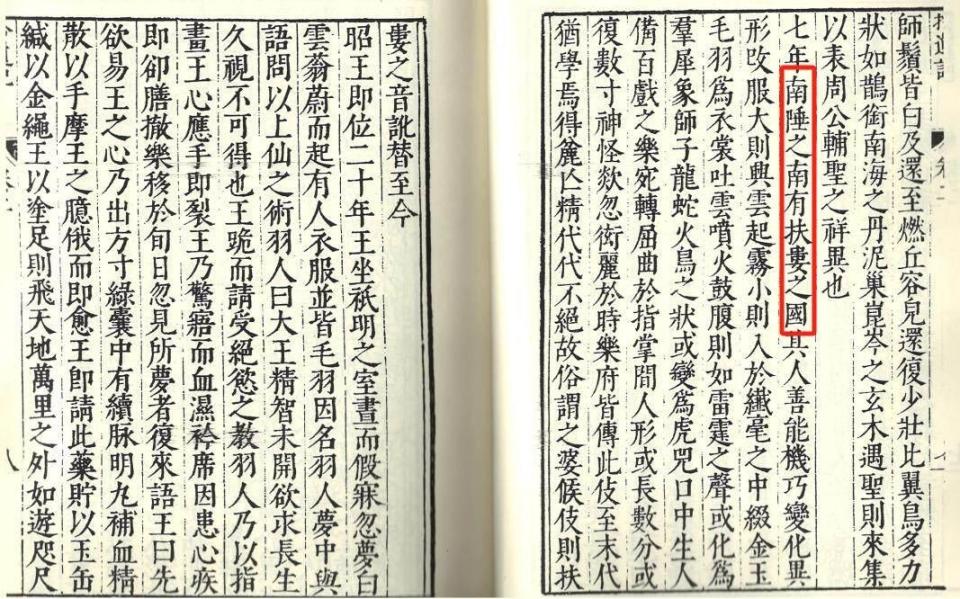 拾遺記
卷二
師鬚皆白及還至燃丘容皃還復少壯比翼鳥多力
狀如鵲銜南海之丹泥巢崑岑之玄木遇聖則來集
以表周公輔聖之祥異也
七年南陲之南有扶婁之國其人善能機巧變化異
形改服大則興雲起霧小則入於纖毫之中綴金玉
毛羽爲衣裳吐雲噴火鼓腹則如雷霆之聲或化爲
羣犀象師子龍蛇火鳥之狀或變爲虎兕口中生人
備百戲之樂宛轉屈曲於指掌間人形或長數分或
復數寸神怪欻忽衒麗於時樂府皆傳此伎至末代
猶學焉得麄亾精代代不絕故俗謂之婆候伎則扶
婁之音訛替至今
昭王即位二十年王坐祇明之室晝而假寐忽夢白
雲蓊蔚而起有人衣服並皆毛羽因名羽人夢中與
語問以上仙之術羽人曰大王精智未開欲求長生
久視不可得也王跪而請受絕慾之教羽人乃以指
畫王心應手即裂王乃驚寤而血濕衿席因患心疾
即卻膳撤樂移於旬日忽見所夢者復來語王曰先
欲易王之心乃出方寸綠囊中有續脉明丸補血精
散以手摩王之臆俄而即愈王卽請此藥貯以玉缶
緘以金繩王以塗足則飛天地萬里之外如遊咫尺
八